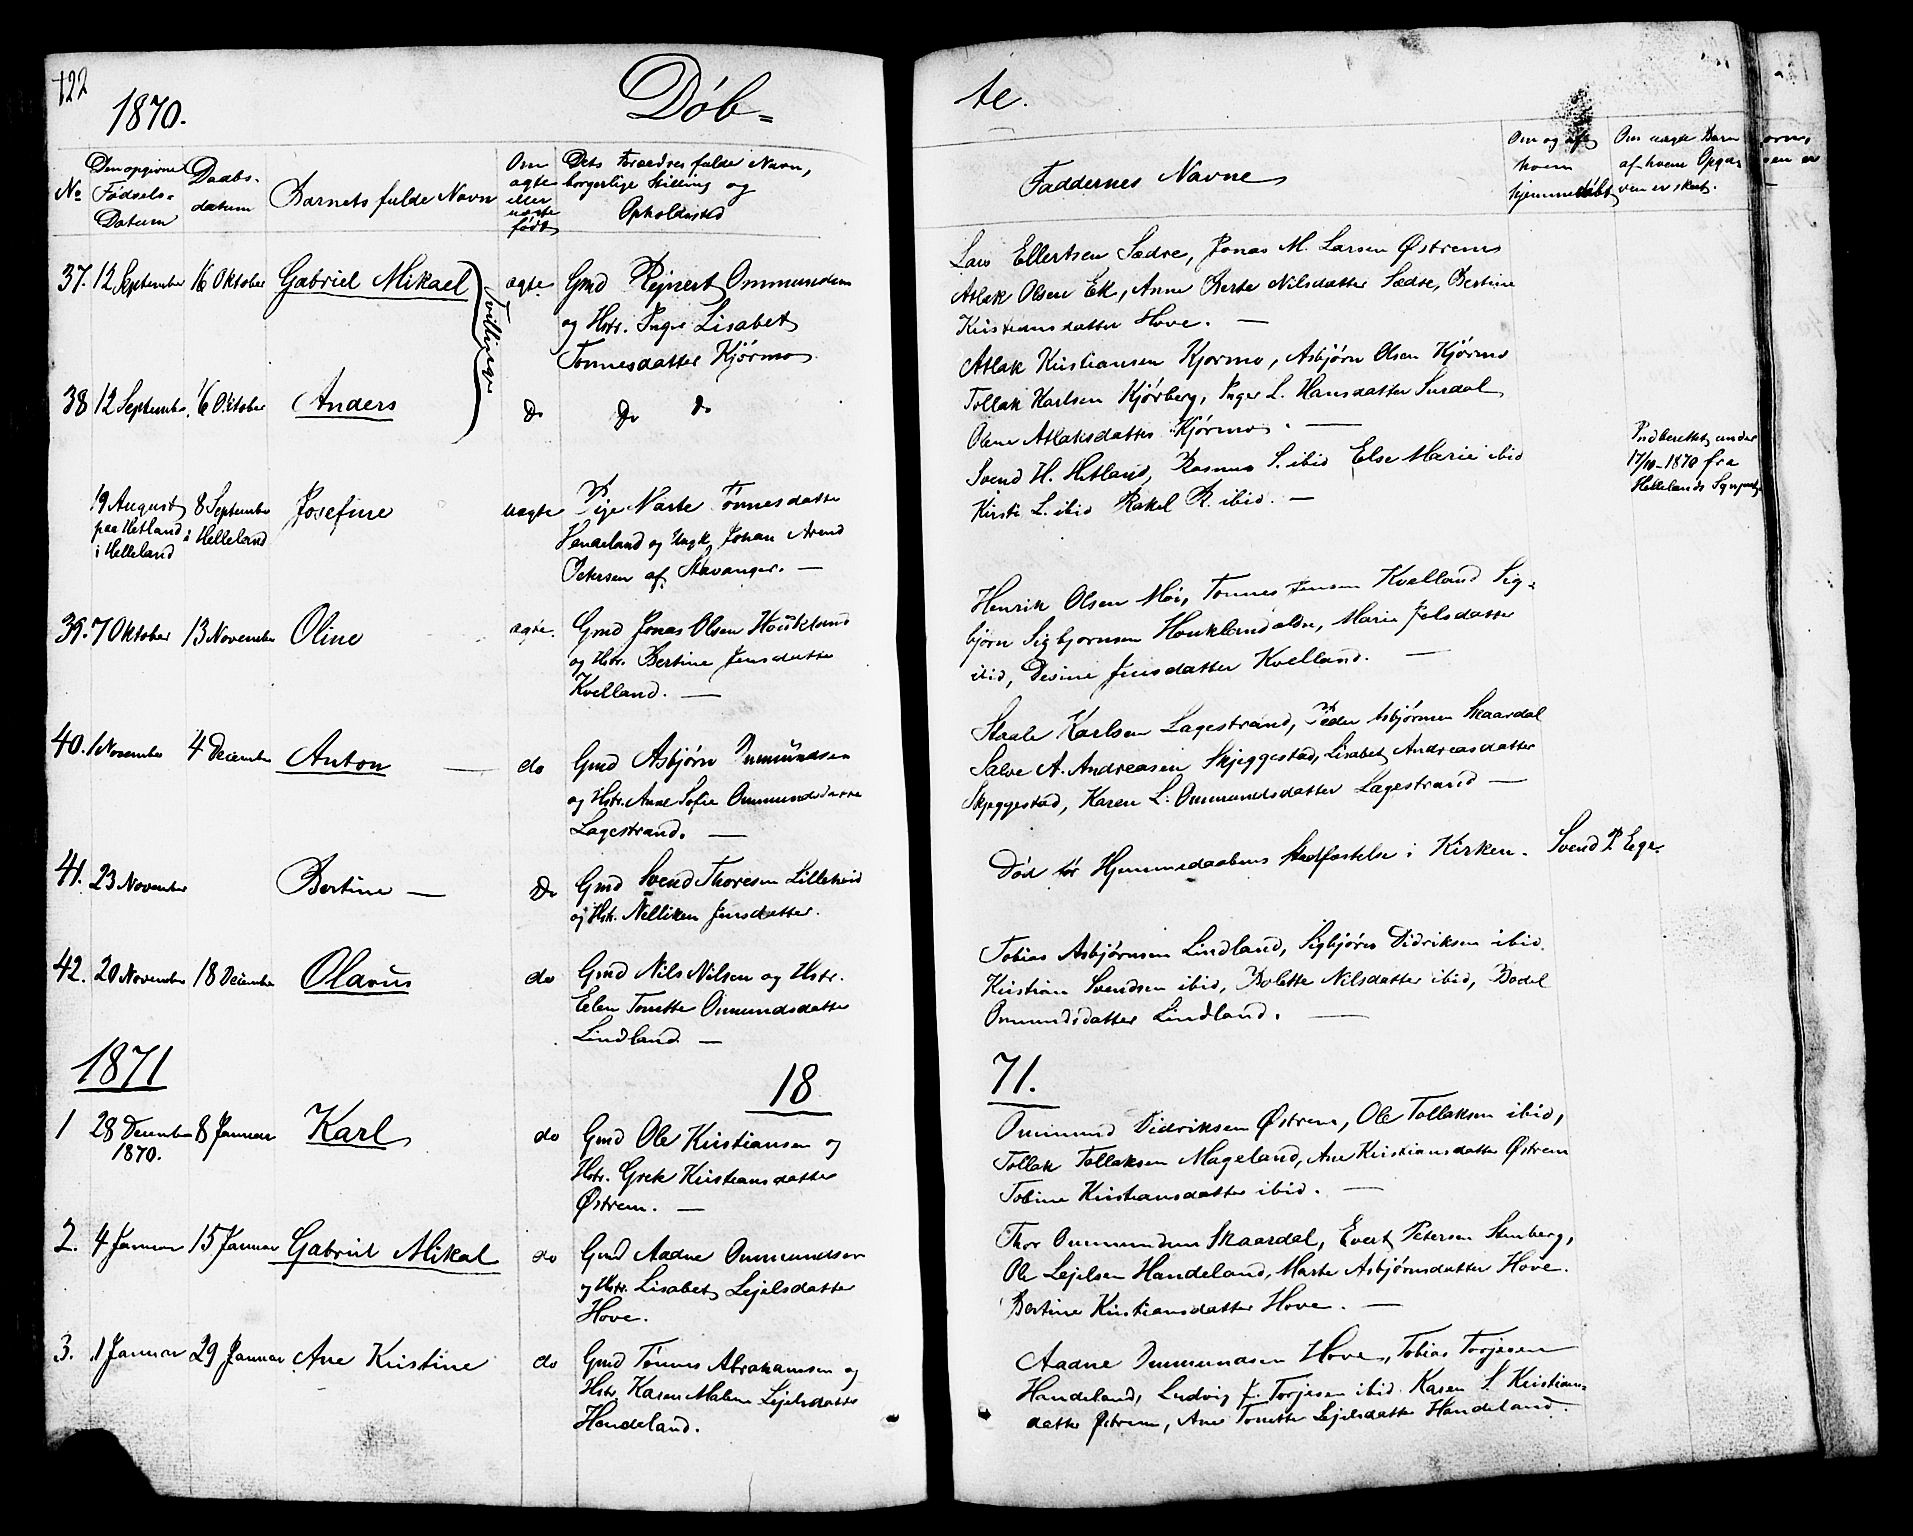 122
1870.
Døb-
te.
No
Den opgivne
Fødsels-
Datum
Daabs-
datum
Barnets fulde Navn
Om
ægte
eller
uægte
født
Dets Forældres fulde Navn,
borgerlige Stilling og
Opholdssted
Faddernes Navne
Om og af
hvem
hjemmedøbt
Om uægte Barn
af hvem Opga-
ven er skeet.
37. 12 September 16 Oktober Gabriel Mikael
Tvillinger
ægte
Gmd Rejnert Ommundsen
og Hstr. Inger Lisabet
Tønnesdatter Kjørmo
Lars Ellertsen Sædre, Jonas M. Larsen Østrem
Atlak Olsen Ek, Anne Berte Nilsdatter Sædre, Bertine
Kristiansdatter Hove. —
38 12 September 16 Oktober Anders
Do Do do
Atlak Kristiansen Kjørmo, Asbjørn Olsen Kjørmo
Tollak Karlsen Kjørberg, Inger L. Hansdatter Surdal
Olene Atlaksdatter Kjørmo. —
19 August
paa Hetland
i Helleland
8 September
i Helleland
Josefine
uægte
Pige Marte Tønnesdatter
Handeland og Ungk. Johan Arend
Petersen af Stavanger. —
Svend H. Hetland, Rasmus S. ibid Else Marie ibid
Kirsti L. ibid Rakel R. ibid. —
Indberettet under
17/10-1870 fra
Hellelands Sgnpræst
39. 7 Oktober 13 November Oline
ægte.
Gmd Jonas Olsen Houkland
og Hstr. Bertine Jensdatter
Kvelland. —
Henrik Olsen Moi, Tønnes Jensen Kvelland Sig-
bjørn Sigbjørnsen Houkland ældre, Marie Joelsdatter
ibid, Desine Jensdatter Kvelland. —
40. 1 November 4 December Anton —
do
Gmd Asbjørn Ommundsen
og Hstr. Anne Sofie Ommundsdatter
Lagestrand. —
Staale Karlsen Lagestrand, Peder Asbjørnsen Skaardal
Salve A. Andreasen Skjeggestad, Lisabet Andreasdatter
Skjeggestad, Karen L. Ommundsdatter Lagestrand —
41. 23 November
Bertine —
Do
Gmd Svend Thoresen Lilleheid
og Hstr. Nelliken Jensdatter.
Død før Hjemmedaabens Stadfæstelse i Kirken.
Svend P. Ege.
42. 20 November 18 December Olavus
do
Gmd Nils Nilsen og Hstr.
Elen Tonette Omundsdatter
Lindland —
Tobias Asbjørnsen Lindland, Sigbjørn Didriksen ibid.
Kristian Svendsen ibid, Bolette Nilsdatter ibid, Bodel
Omundsdatter Lindland. —
1871
18
71.
1 28 December
1870.
8 Januar Karl
do
Gmd Ole Kristiansen og
Hstr. Grete Kristiansdatter
Østrem. —
Ommund Didriksen Østrem, Ole Tollaksen ibid,
Tollak Tollaksen Mageland, Ane Kristiansdatter Østrem
Tobine Kristiansdatter ibid. —
2. 4 Januar 15 Januar Gabriel Mikal
do
Gmd Aadne Ommundsen
og Hstr. Lisabet Lejelsdatter
Hove.
Thor Ommundsen Skaardal, Evert Petersen Stenberg,
Ole Lejelsen Handeland, Marte Asbjørnsdatter Hove.
Bertine Kristiansdatter Hove. —
3. 1 Januar 29 Januar Ane Kristine
do
Gmd Tønnes Abrahamsen og
Hstr. Karen Malene Lejelsdatter
Handeland.
Aadne Ommundsen Hove, Tobias Torjesen
Handeland, Ludvig J. Torjesen ibid. Karen S. Kristians-
datter Østrem, Ane Tonette Lejelsdatter Handeland.